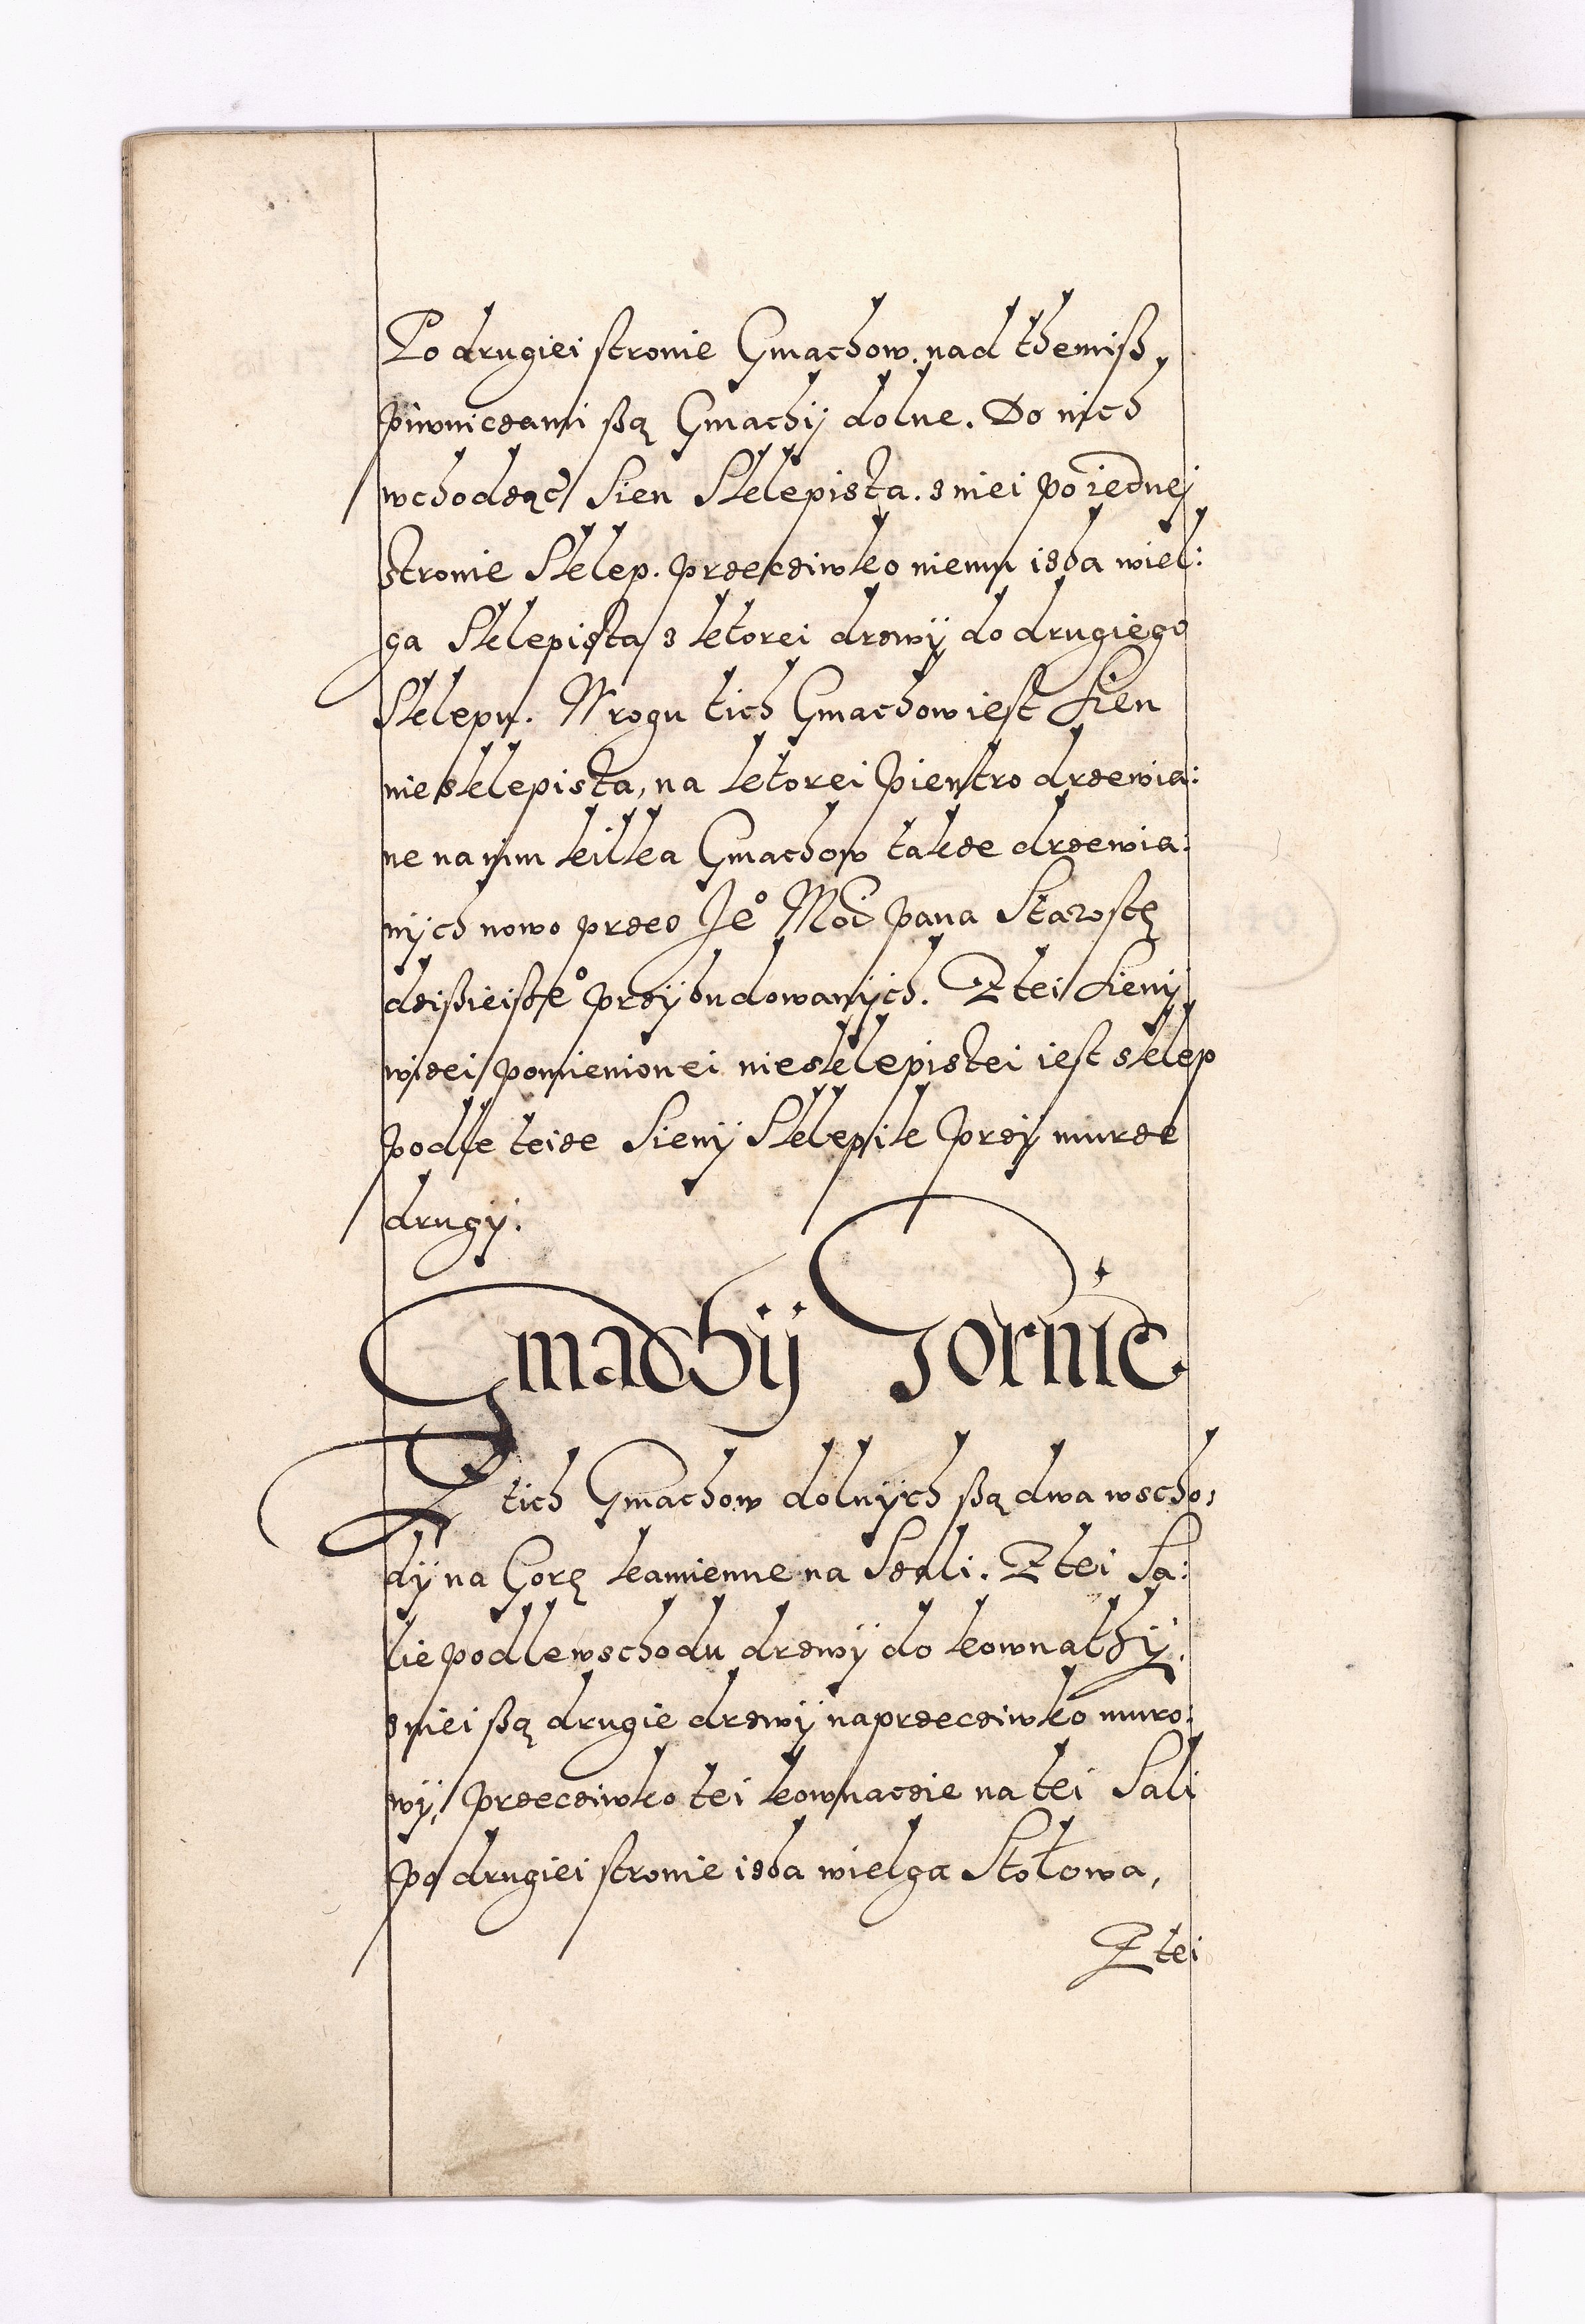 Po drugiei stronie Gmachow. nad themisz
piwniczami sżą Gmachÿ dolne. Do nich
wchodząc Sien Sklepista. z niei po iednej
stronie Sklep. przecziwko niemu izba wiel:
ga Sklepista z ktorei drzwÿ do drugiego
Sklepu. W rogu tich Gmachow iest Sien
niesklepista, na ktorei pientro drzewia:
ne na nim kilka Gmachow takze drzewia:
nÿch nowo przez Je° Mći pana Starostę
dzisżieisze° przÿbudowanÿch. Z tei Sieni
wizei pomienionei niesklepistei iest sklep
podle teize Sieni Sklepik przÿ murze
drugÿ.
Gmachÿ Gornie.
Z tich Gmachow dolnÿch sżą dwa wscho:
dÿ na Gorę kamienne na Szali. Z tei Sa:
lie podle wschodu drzwÿ do kownathÿ.
z niei sżą drugie drzwÿ naprzecziwko muro:
wÿ, przecziwko tei kownaczie na tei Sali
po drugiei stronie izba wielga Stołowa,
Z tei